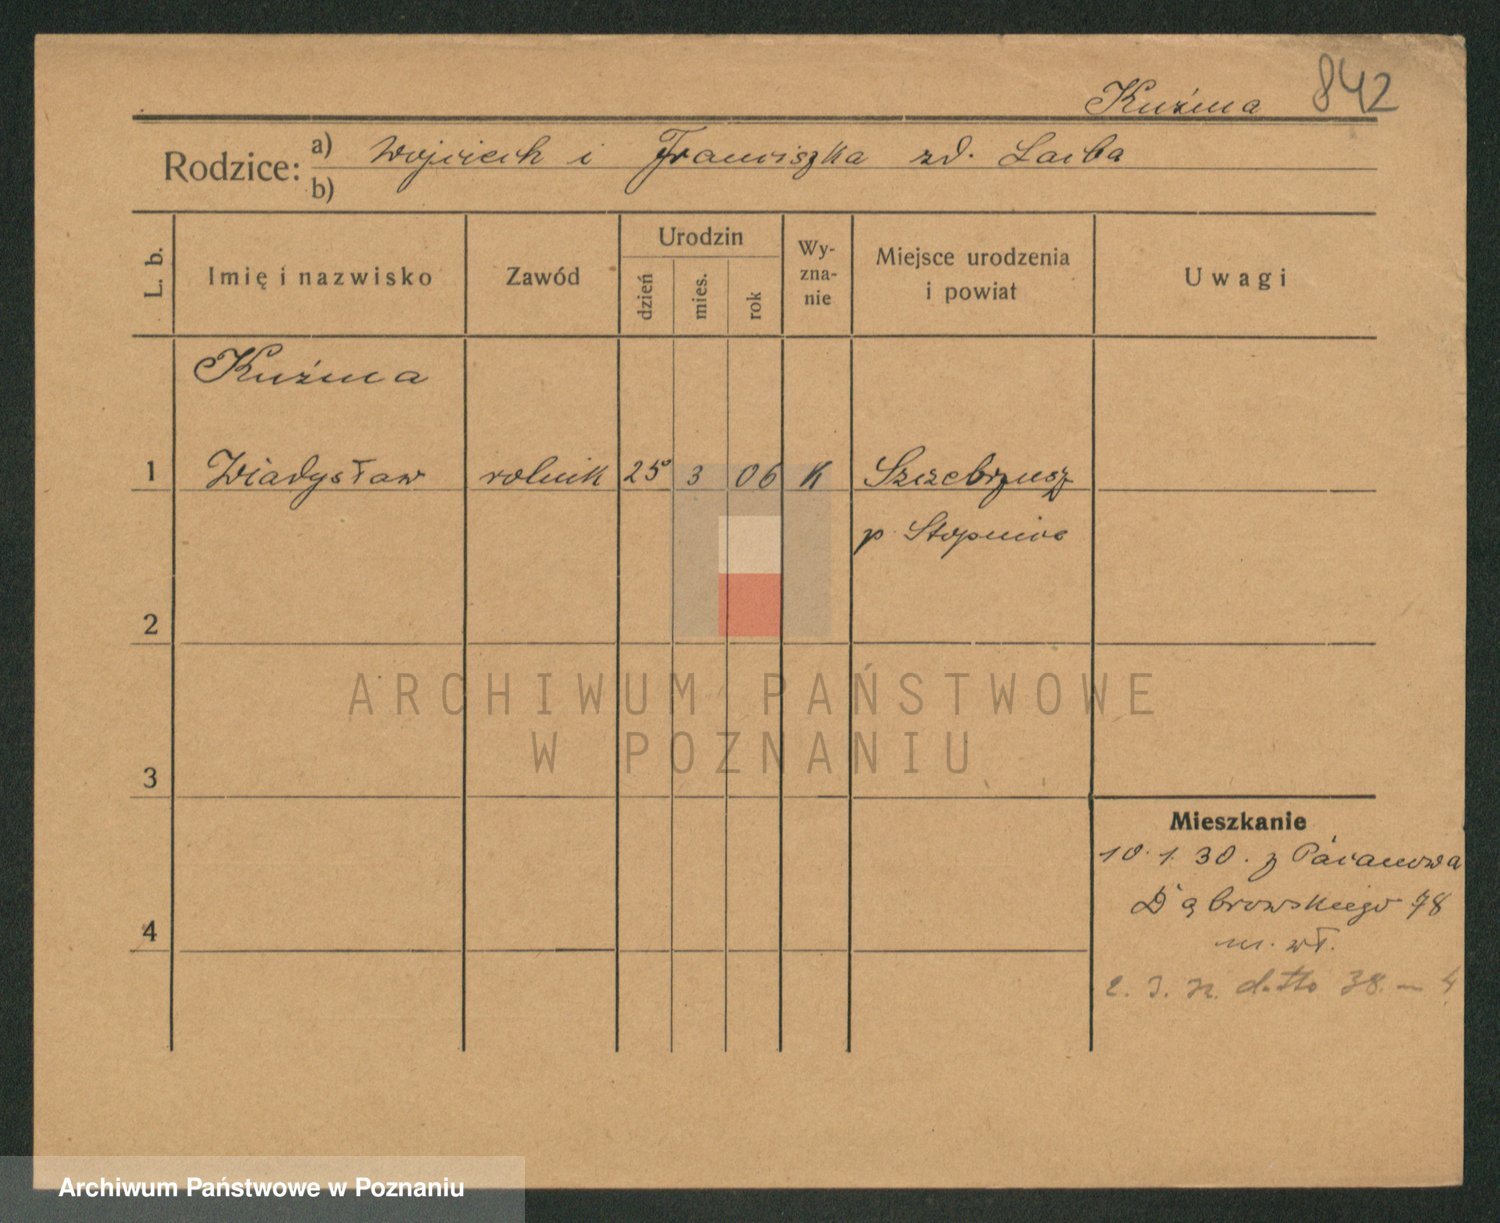 Kuźma 842
Rodzice: a) Wojciech i Franciszka zd. Laiba
b)
L. b. Imię i nazwisko Zawód Urodzin dzień mies. rok Wy-zna-nie Miejsce urodzenia i powiat Uwagi
Kuźma
1 Władysław rolnik 25 3 06 K Szczebrzusz
p. Stopnica
2
ARCHIWUM PAŃSTWOWE
W POZNANIU
3
Mieszkanie
10. 1. 30. z Pacanowa
Dąbrowskiego 78
4
m. wł.
2. 3. dtto 38. — 4
Archiwum Państwowe w Poznaniu